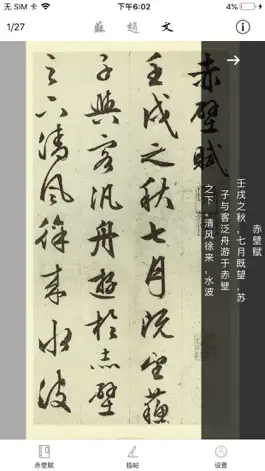 无 SIM 卡 下午6:02 4%
1/27 蘇 趙 文
赤壁賦
壬戌之秋七月既望蘇
子與客汎舟遊於赤壁
之下清風徐來水波
赤壁赋
壬戌之秋,七月既望,苏
子与客泛舟游于赤壁
之下,清风徐来,水波
赤壁赋 临帖 设置